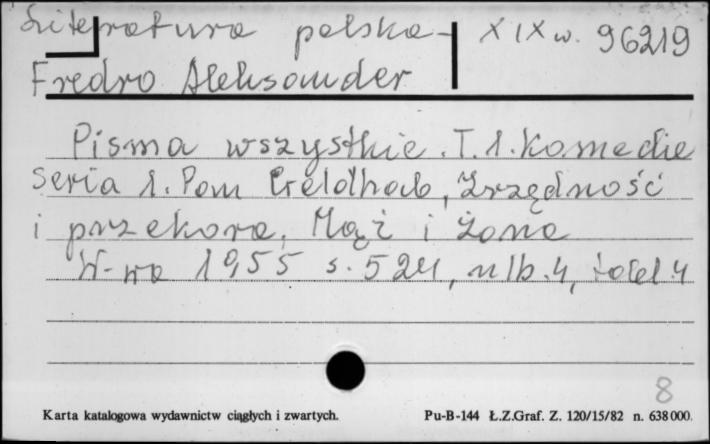 Literatura polska - XIX w. 96219
Fredro Aleksander
Pisma wszystkie. T. 1. Komedie
Seria 1. Pan Geldhab, Zrzędność
i przekora, Mąż i żona
W-wa 1955 s. 524, nlb. 4, tabl. 4
8
Karta katalogowa wydawnictw ciągłych i zwartych. Pu-B-144 Ł.Z.Graf. Z. 120/15/82 n. 638000.